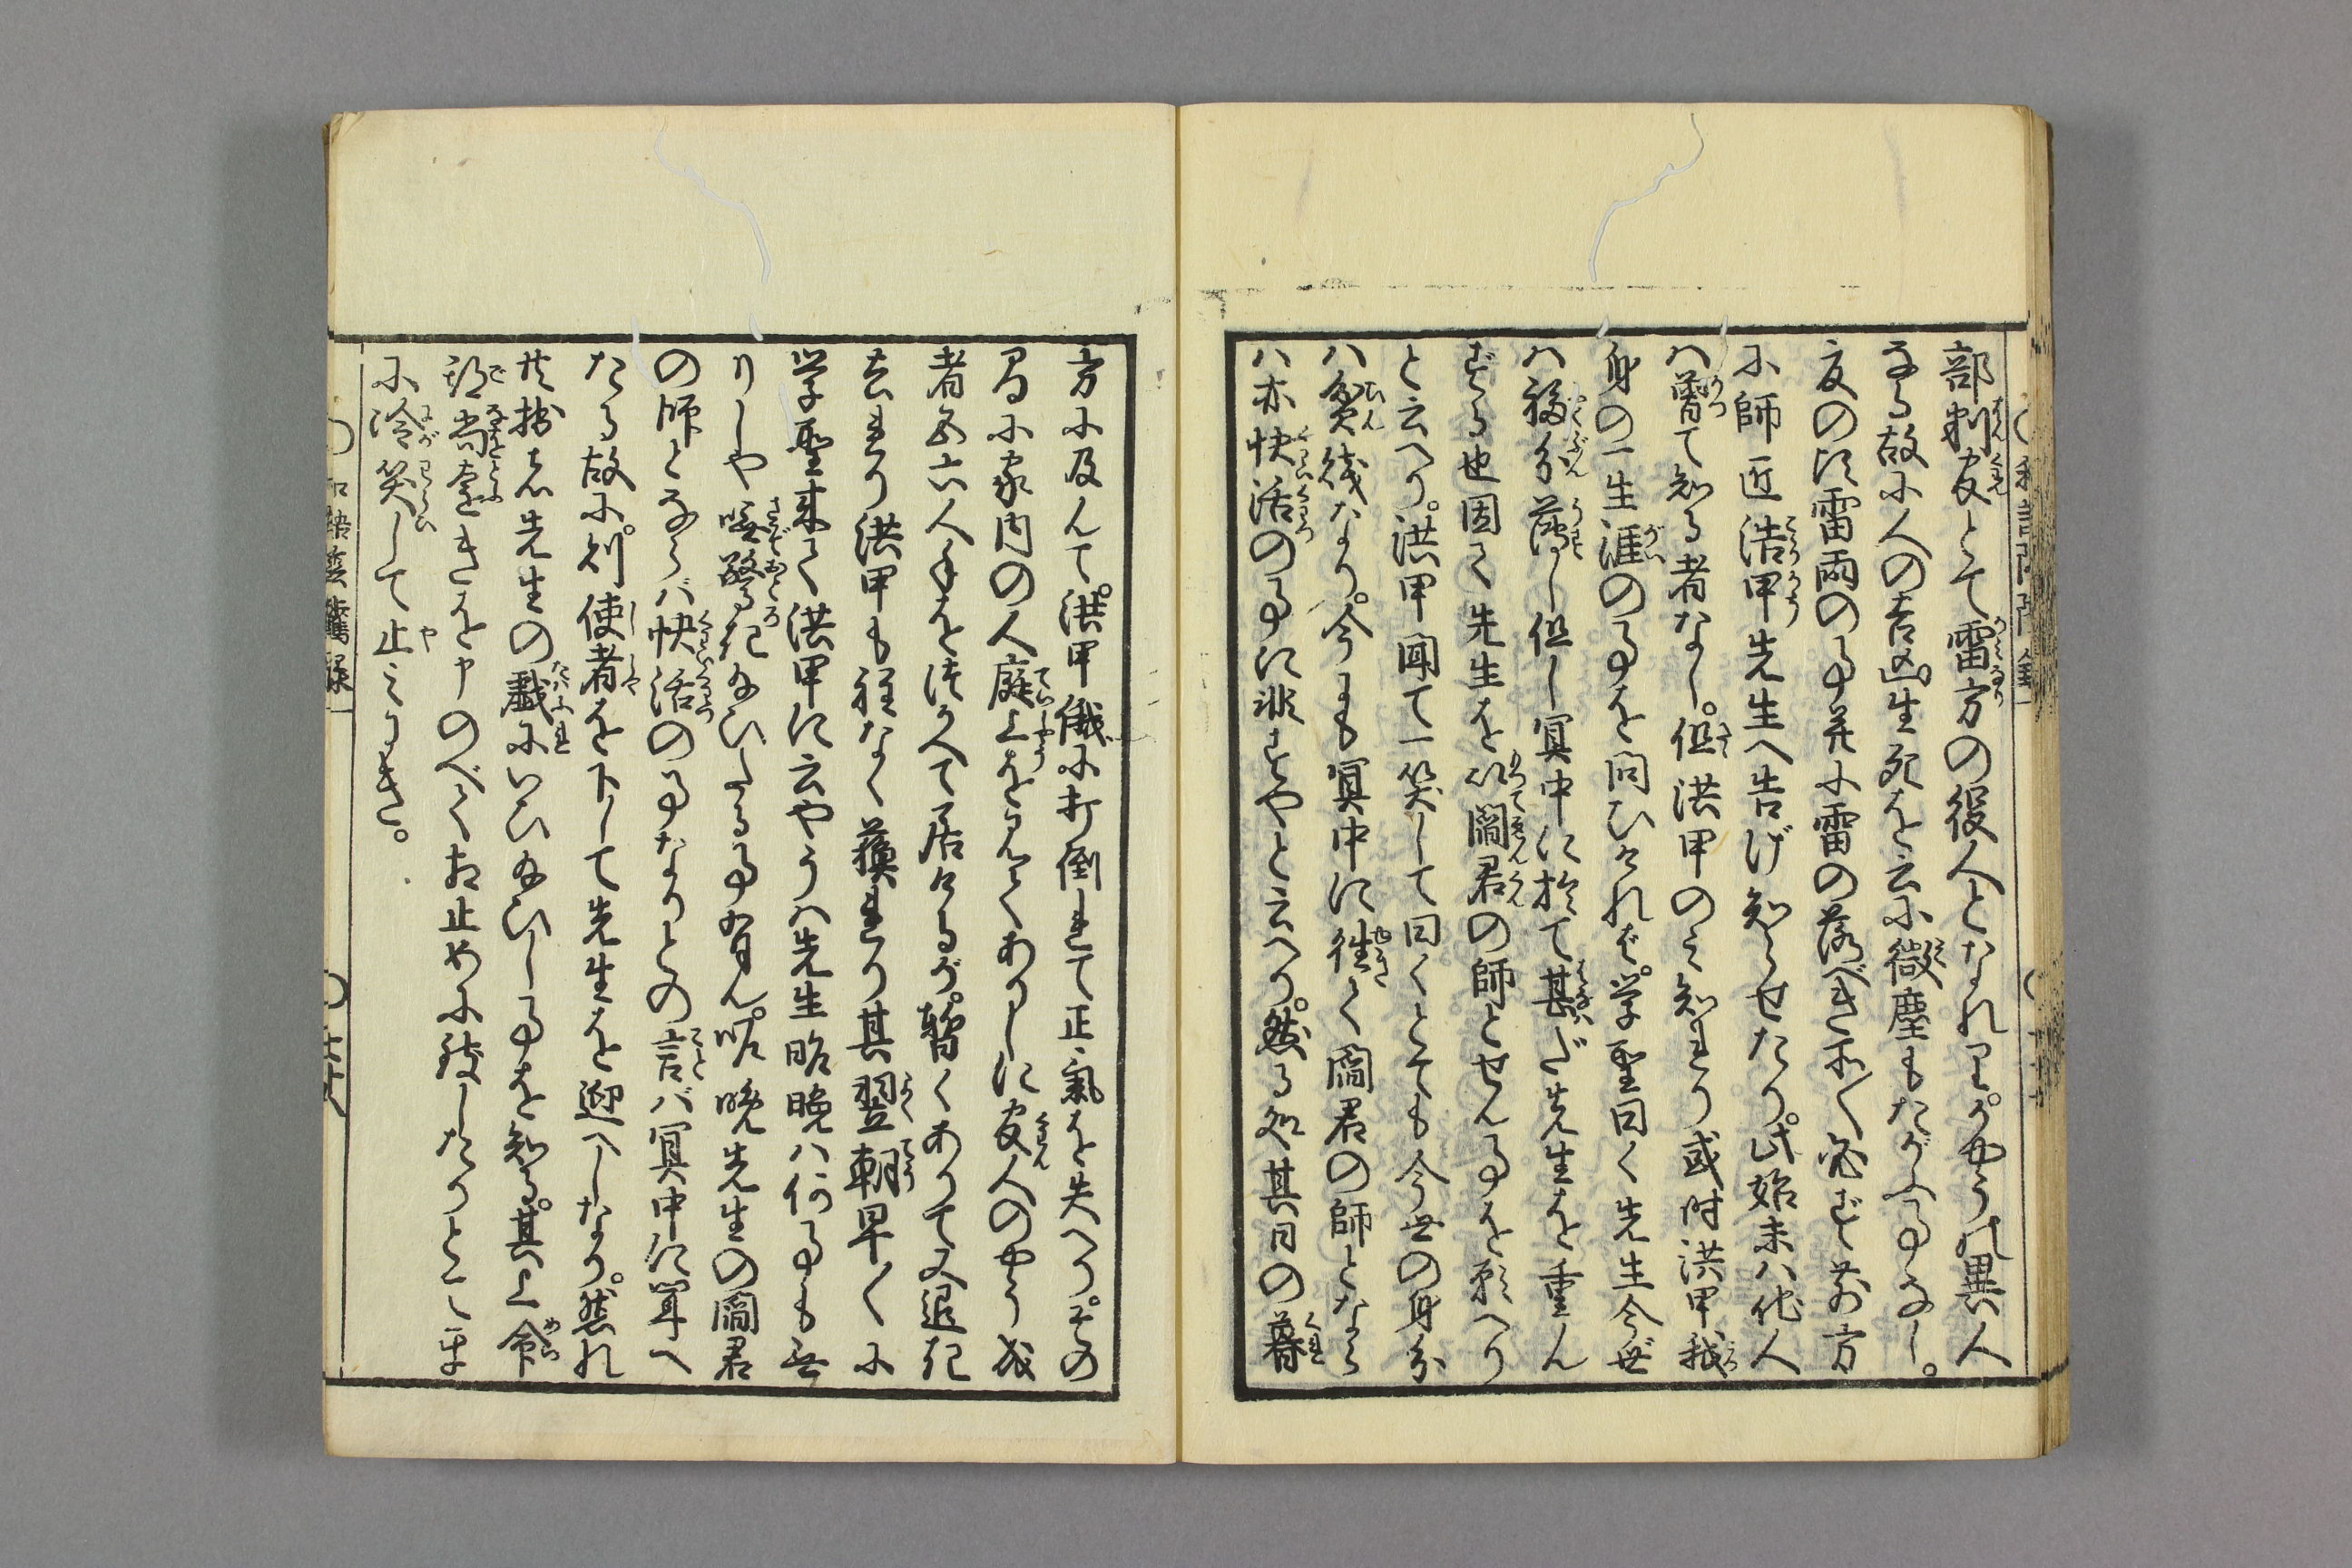 部判官とて雷方の役人となれりかやうの異人
なる故に人の吉凶生死を云に微塵もたがふ事なし。
夏の頃雷雨の事并に雷の落べき所〳〵必ず前方
に師匠浩甲先生へ告げ知らせたり。此始末ハ他人
ハ曽て知る者なし。但洪甲のミ知れり或時洪甲我
身の一生涯の事を問ひけれバ学聖曰く先生今世
ハ福分薄し但し冥中に於て甚だ先生を重ん
ずる也因て先生を以閻君の師とせん事を願へり
と云へり。洪甲聞て一笑して曰くとても今世の身分
ハ貧賤なり。今にも冥中に往く閻君の師となら
ハ亦快活の事に非ずやと云へり。然る処其日の暮
方に及んて。洪甲俄に打倒れて正氣を失へり。その
間に家内の人庭上を見てありしに官人のやう成
者五六人手をつかへて居けるが。暫くありて又退き
去れり洪甲も程なく蘓れり其翌朝早くに
学聖来て洪甲に云やうハ先生昨晩ハ何事も無
りしや嘸驚きなひたる事有ん。昨晩先生の閻君
の師とならバ快活の事なりとの言バ冥中に聞へ
たる故に。則使者を下して先生を迎へしなり。然れ
共拙者先生の戯にいひなひし事を知る。其上命
部尚書をきを申のべてお止めに致したりと云ま
に冷笑して止ミにき。